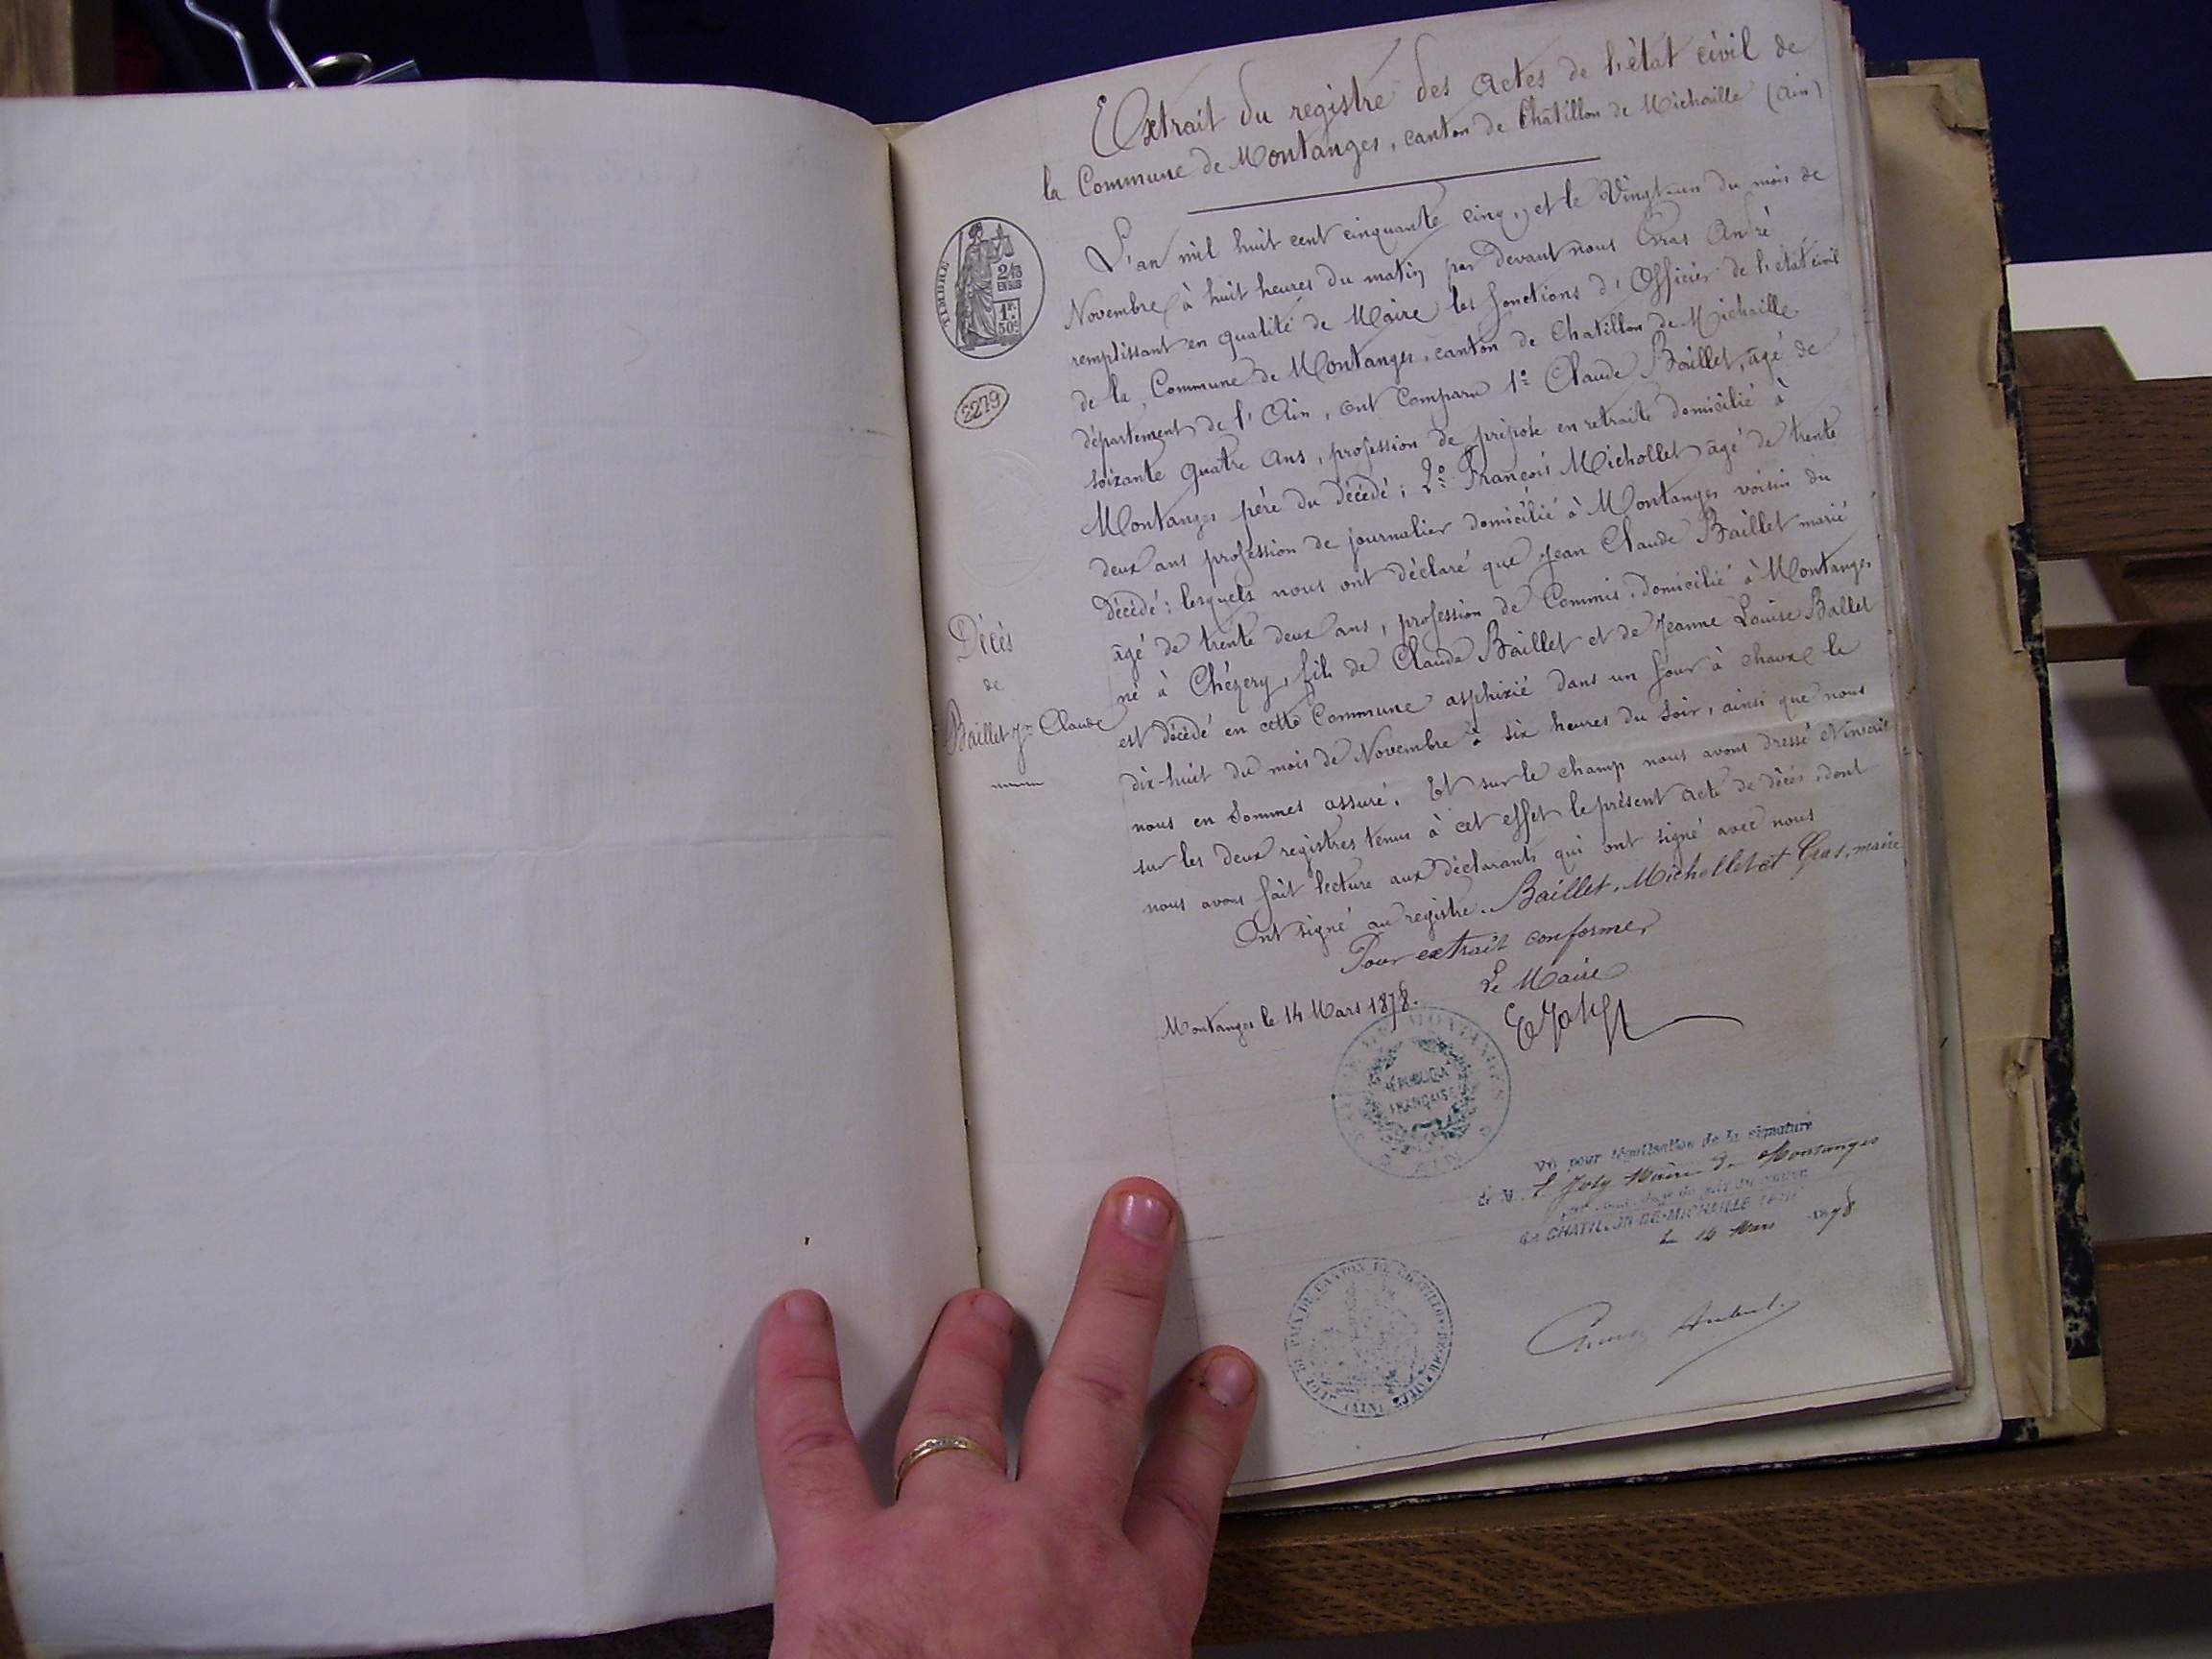 Extrait du registre des actes de l'état civil de
la Commune de Montanges, canton de Châtillon de Michaille (Ain)
TIMBRE
2/10
EN SUS
1F.
50c
2279
L'an mil huit cent cinquante cinq, et le Vingt-un du mois de
Novembre à huit heures du matin par devant nous Gras André
remplissant en qualité de Maire les fonctions d'Officier de l'état civil
de la Commune de Montanges, canton de Chatillon de Michaille
département de l'Ain, ont comparu 1º Claude Baillet, âgé de
soixante quatre ans, profession de préposé en retraite domicilié à
Montanges père du décédé; 2º François Michollet âgé de trente
deux ans profession de journalier domicilié à Montanges voisin du
décédé: lesquels nous ont déclaré que Jean Claude Baillet marié
âgé de trente deux ans, profession de Commis, domicilié à Montanges
né à Chézery, fils de Claude Baillet et de Jeanne Louise Ballet
est décédé en cette Commune asphixié dans un four à chaux le
dix-huit du mois de Novembre à six heures du soir, ainsi que nous
nous en sommes assuré. Et sur le champ nous avons dressé et inscrit
sur les deux registres tenus à cet effet le présent acte de décès, dont
nous avons fait lecture aux déclarants qui ont signé avec nous
Ont signé au registre. Baillet, Michollet et Gras, maire
Décès
de
Baillet Jn Claude
Pour extrait conforme,
Le Maire
Montanges le 14 Mars 1878.
E Joly
MAIRIE DE MONTANGES
RÉPUBLIQUE
FRANÇAISE
AIN
Vu pour légalisation de la signature
de M. E Joly Maire de Montanges
de CHATILLON-DE-MICHAILLE (Ain)
Le 15 Mars 1878
JUGE DE PAIX DU CANTON DE CHATILLON-DE-MICHAILLE
(AIN)